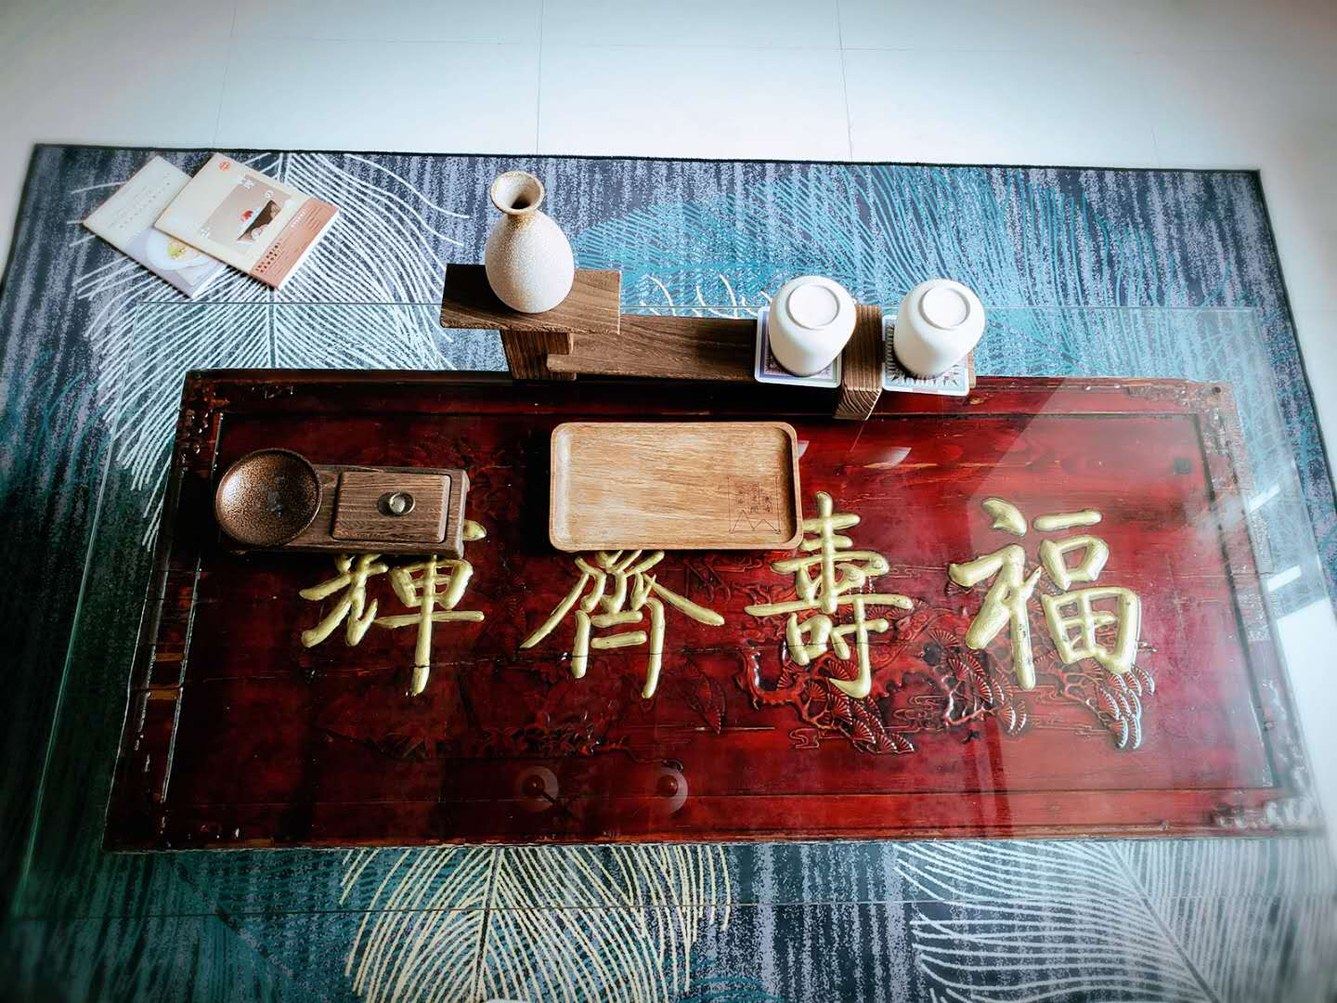 福壽齊輝